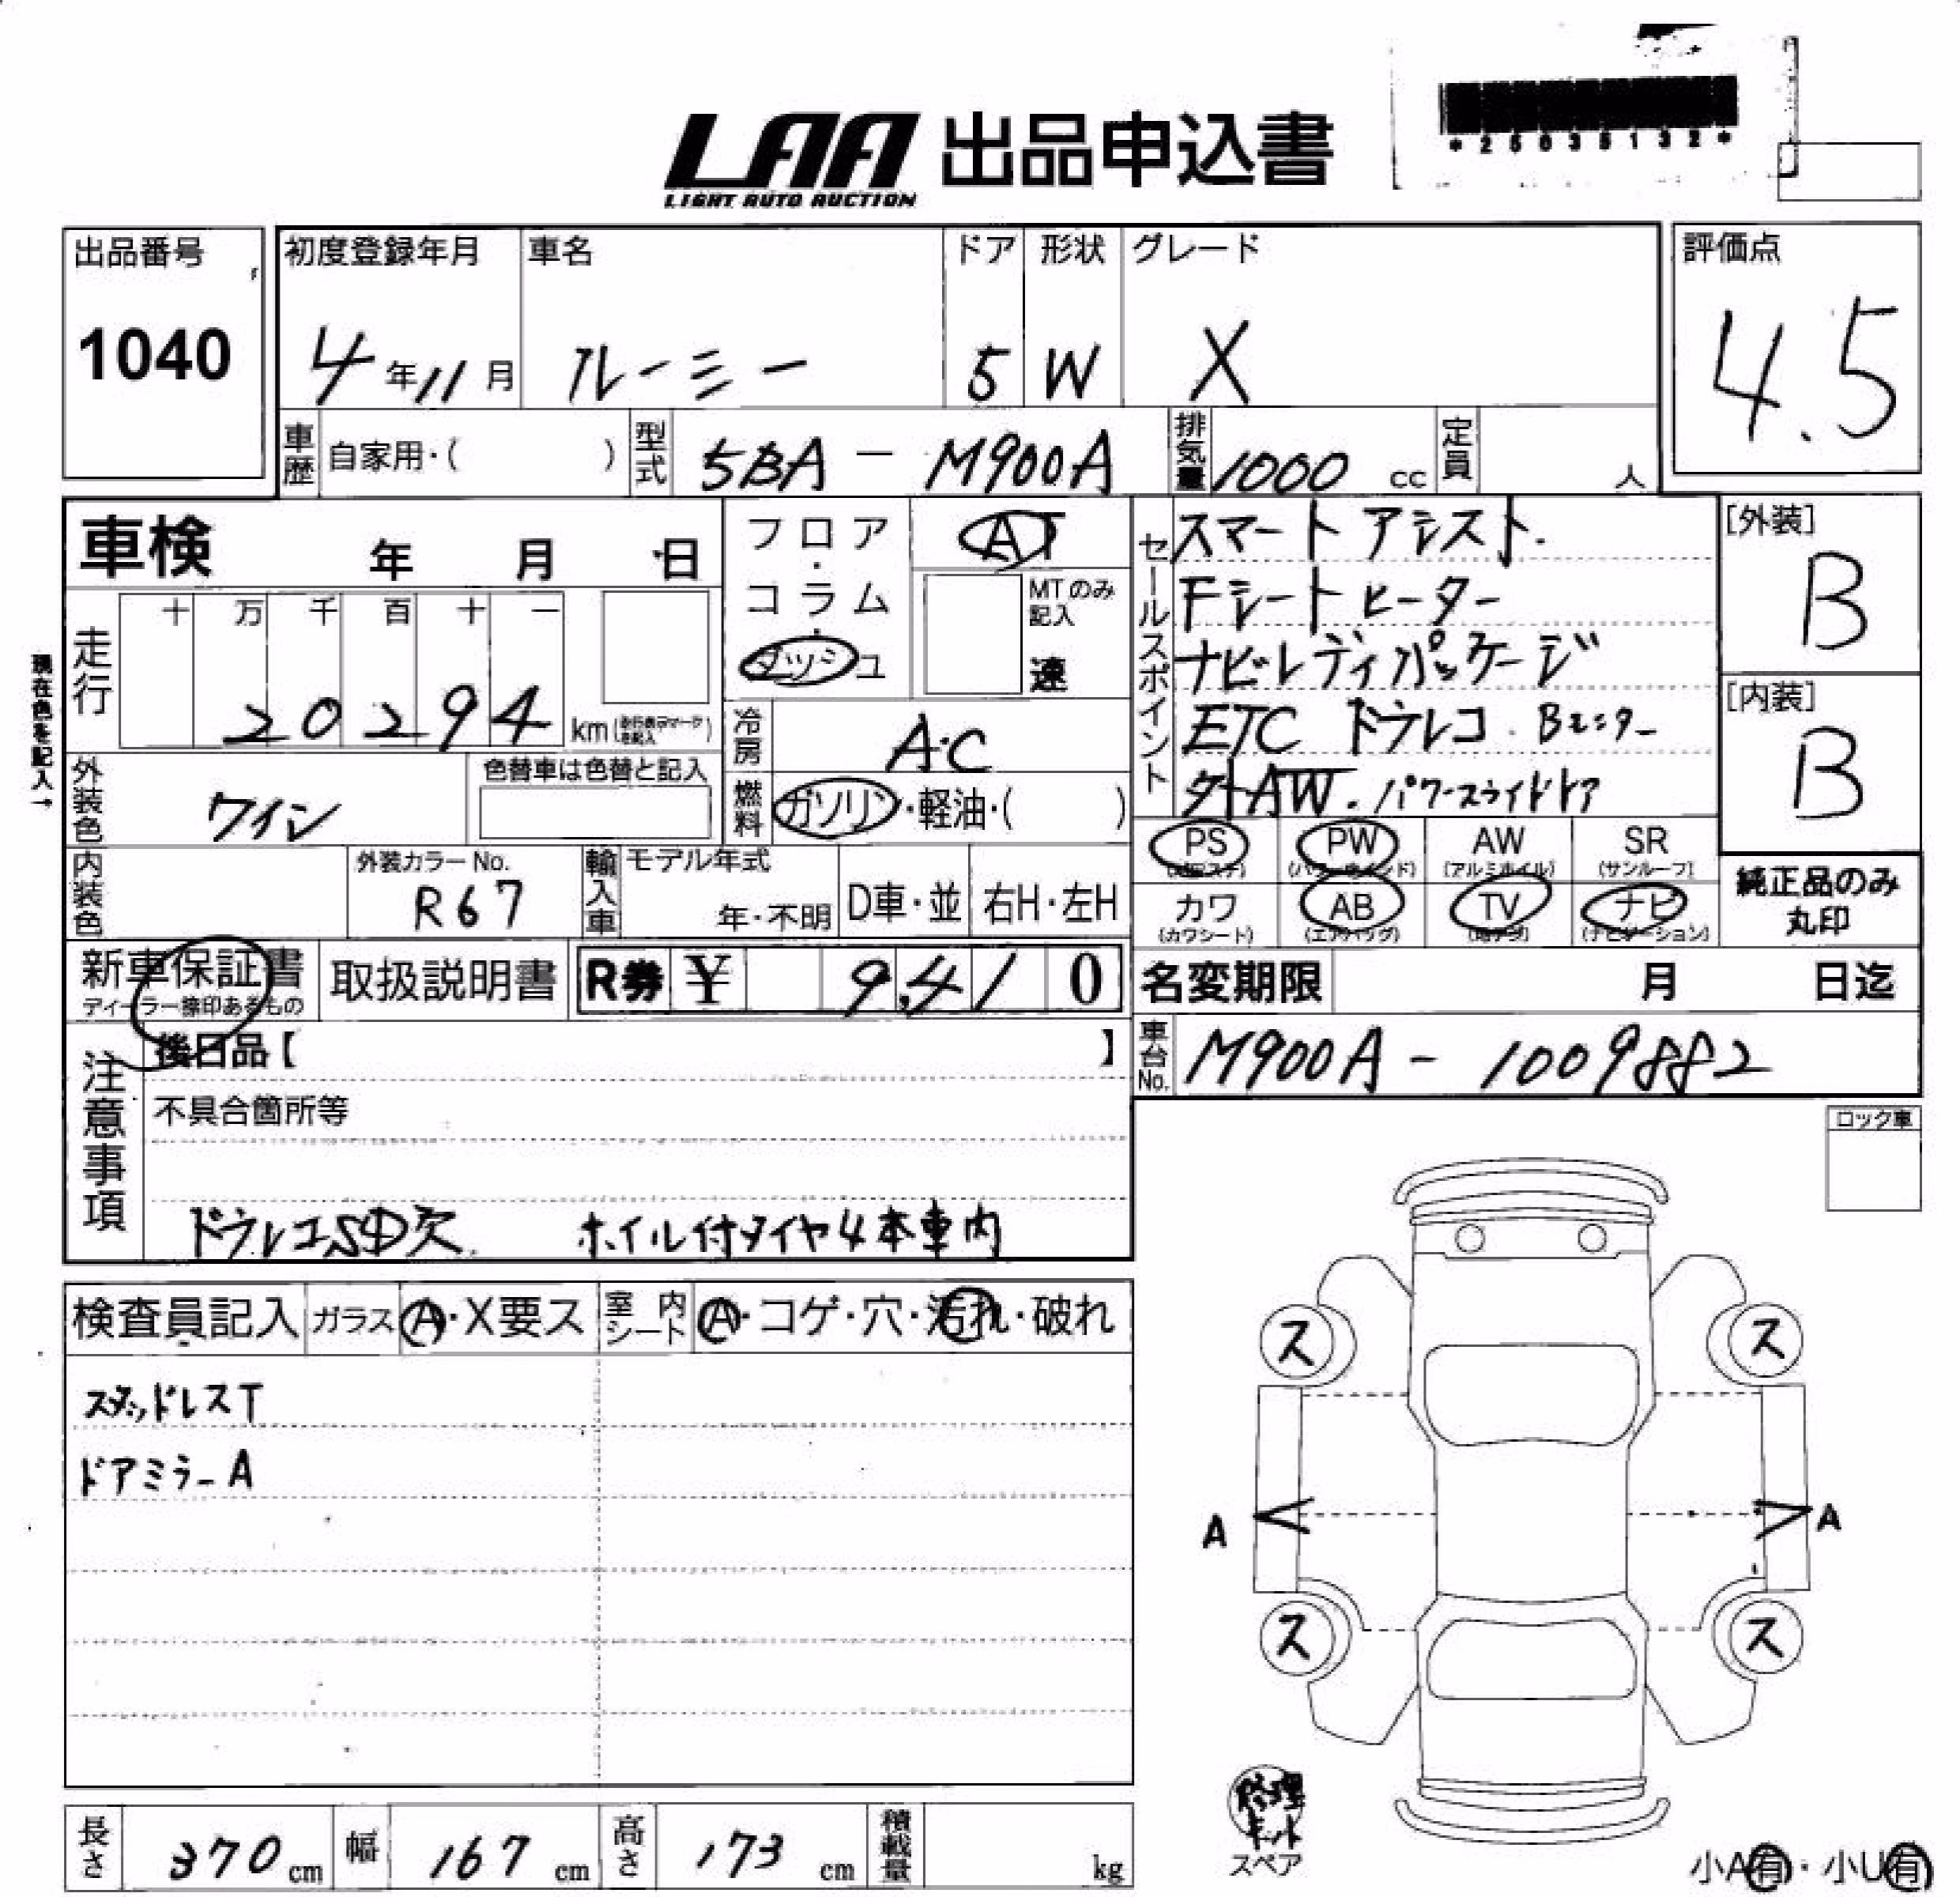 LAA 出品申込書
LIGHT AUTO AUCTION
*25035132*
出品番号
1040
初度登録年月 車名 ドア 形状 グレード
4年11月 ルーミー 5 W X
評価点
4.5
車歴 自家用・( ) 型式 5BA - M900A 排気量 1000 cc 定員 人
車検 年 月 日
フロア・コラム・ダッシュ
AT
MTのみ記入
速
走行 十 万 千 百 十 一
20294 km
現在色を記入→
冷房 AC
燃料 ガソリン・軽油・( )
外装色 ワイン
色替車は色替と記入
内装色
外装カラーNo.
R67
輸入車 モデル年式
年・不明 D車・並 右H・左H
セールスポイント
スマートアシスト.
Fシートヒーター
ナビレディパッケージ
ETC ドラレコ Bモニター
外AW. パワースライドドア
[外装]
B
[内装]
B
PS PW AW SR
(アルミホイル) (サンルーフ)
カワ AB TV ナビ
(カワシート) (エアバッグ) (ナビゲーション)
純正品のみ
丸印
新車保証書
ディーラー捺印あるもの
取扱説明書
R券 ¥ 9,410
名変期限 月 日迄
車台No. M900A - 1009882
注意事項
後日品【 】
不具合箇所等
ドラレコSD欠. ホイル付タイヤ4本車内
ロック車
検査員記入 ガラス A・X要ス 室内シート A・コゲ・穴・汚れ・破れ
スタッドレスT
ドアミラーA
ス ス
A A
ス ス
修理キット
スペア
小A有・小U有
長さ 370 cm 幅 167 cm 高さ 173 cm 積載量 kg